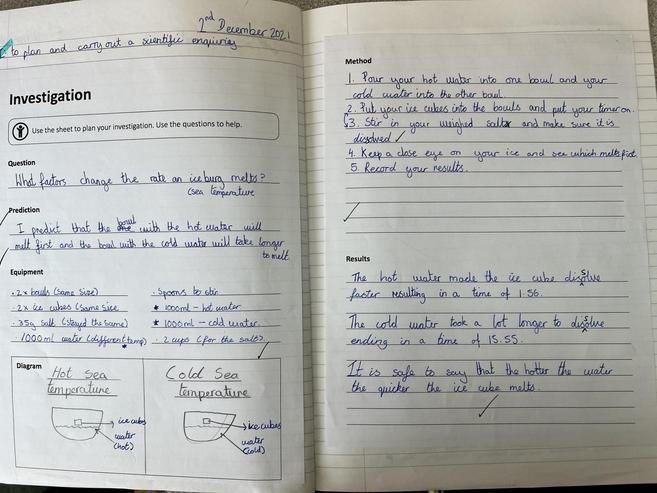 2nd December 2021
to plan and carry out a scientific enquiries
Investigation
Use the sheet to plan your investigation. Use the questions to help.
Question
What factors change the rate an iceburg melts?
(sea temperature
Prediction
I predict that the bowl with the hot water will
melt first and the bowl with the cold water will take longer
to melt
Equipment
· 2x bowls (same size)
· 2x ice cubes (same sice
· 35g salt (stayed the same)
· 1000ml water (different temp)
· Spoons to stir
* 1000ml - hot water
* 1000ml - cold water
· 2 cups (for the salt)
Diagram
Hot Sea
temperature
ice cubes
water
(hot)
Cold Sea
temperature
ice cubes
water
(cold)
Method
1. Pour your hot water into one bowl and your
cold water into the other bowl.
2. Put your ice cubes into the bowls and put your timer on.
3. Stir in your weighed salt and make sure it is
disolved
4. Keep a close eye on your ice and see which melts first
5. Record your results.
Results
The hot water made the ice cube dissolve
faster resulting in a time of 1:56.
The cold water took a lot longer to dissolve
ending in a time of 15:55.
It is safe to say that the hotter the water
the quicker the ice cube melts.